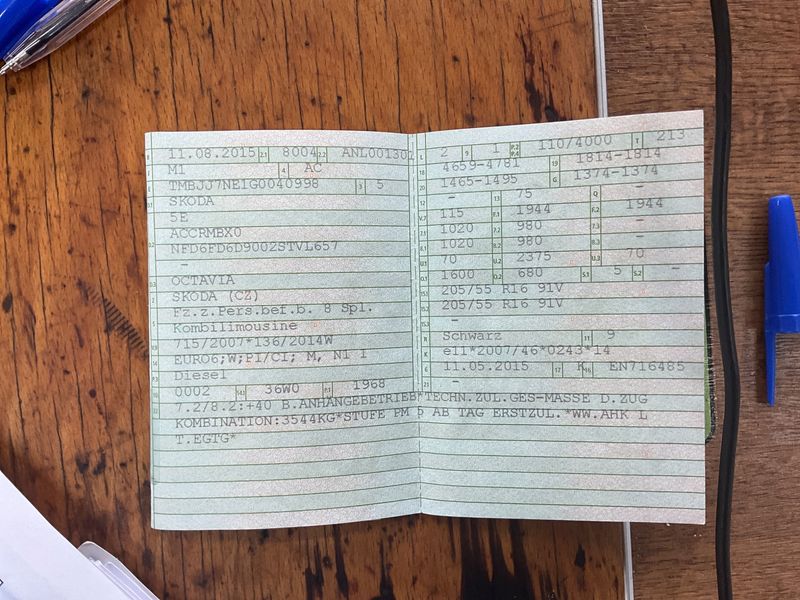 B 11.08.2015 2.1 8004 2.2 ANL001301
J M1 4 AC
E TMBJJ7NE1G0040998 3 5
D.1 SKODA
5E
D.2 ACCRMBX0
NFD6FD6D900ZSTVL657
–
D.3 OCTAVIA
2 SKODA (CZ)
5 Fz.z.Pers.bef.b. 8 Spl.
Kombilimousine
V.9 715/2007*136/2014W
14 EURO6;W;PI/CI; M, N1 I
P.3 Diesel
10 0002 14.1 36W0 P.1 1968
22 7.2/8.2:+40 B.ANHÄNGEBETRIEB*TECHN.ZUL.GES-MASSE D.ZUG
KOMBINATION:3544KG*STUFE PM 5 AB TAG ERSTZUL.*WW.AHK L
T.EGTG*
L 2 9 1 P.2 P.4 110/4000 T 213
18 4659-4781 19 1814-1814
20 1465-1495 G 1374-1374
12 – 13 75 Q –
V.7 115 F.1 1944 F.2 1944
7.1 1020 7.2 980 7.3 –
8.1 1020 8.2 980 8.3 –
U.1 70 U.2 2375 U.3 70
O.1 1600 O.2 680 S.1 5 S.2 –
15.1 205/55 R16 91V
15.2 205/55 R16 91V
15.3 –
R Schwarz 11 9
K e11*2007/46*0243*14
6 11.05.2015 17 K 16 EN716485
21 –